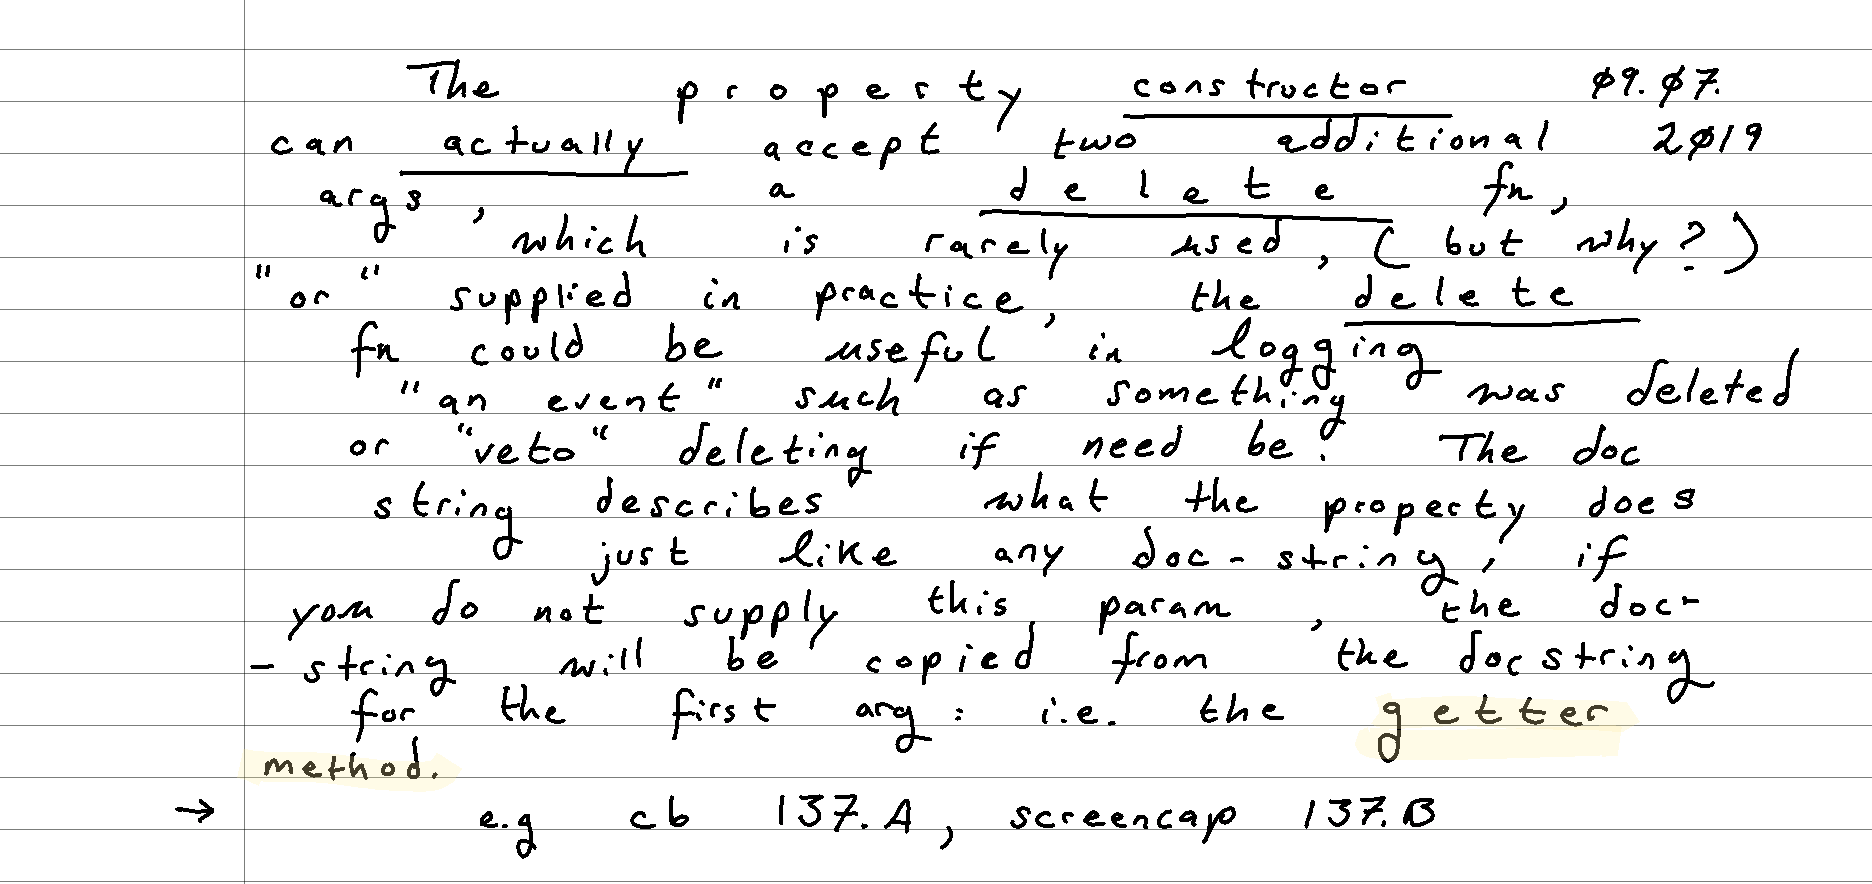 The property constructor ø9.ø7.
can actually accept two additional 2ø19
args, a delete fn,
which is rarely used, ( but why? )
"or" supplied in practice, the delete
fn could be useful in logging
"an event" such as something was deleted
or "veto" deleting if need be! The doc
string describes what the property does
just like any doc-string, if
you do not supply this param, the doc-
-string will be copied from the docstring
for the first arg: i.e. the getter
method.
→ e.g cb 137.A, screencap 137.B